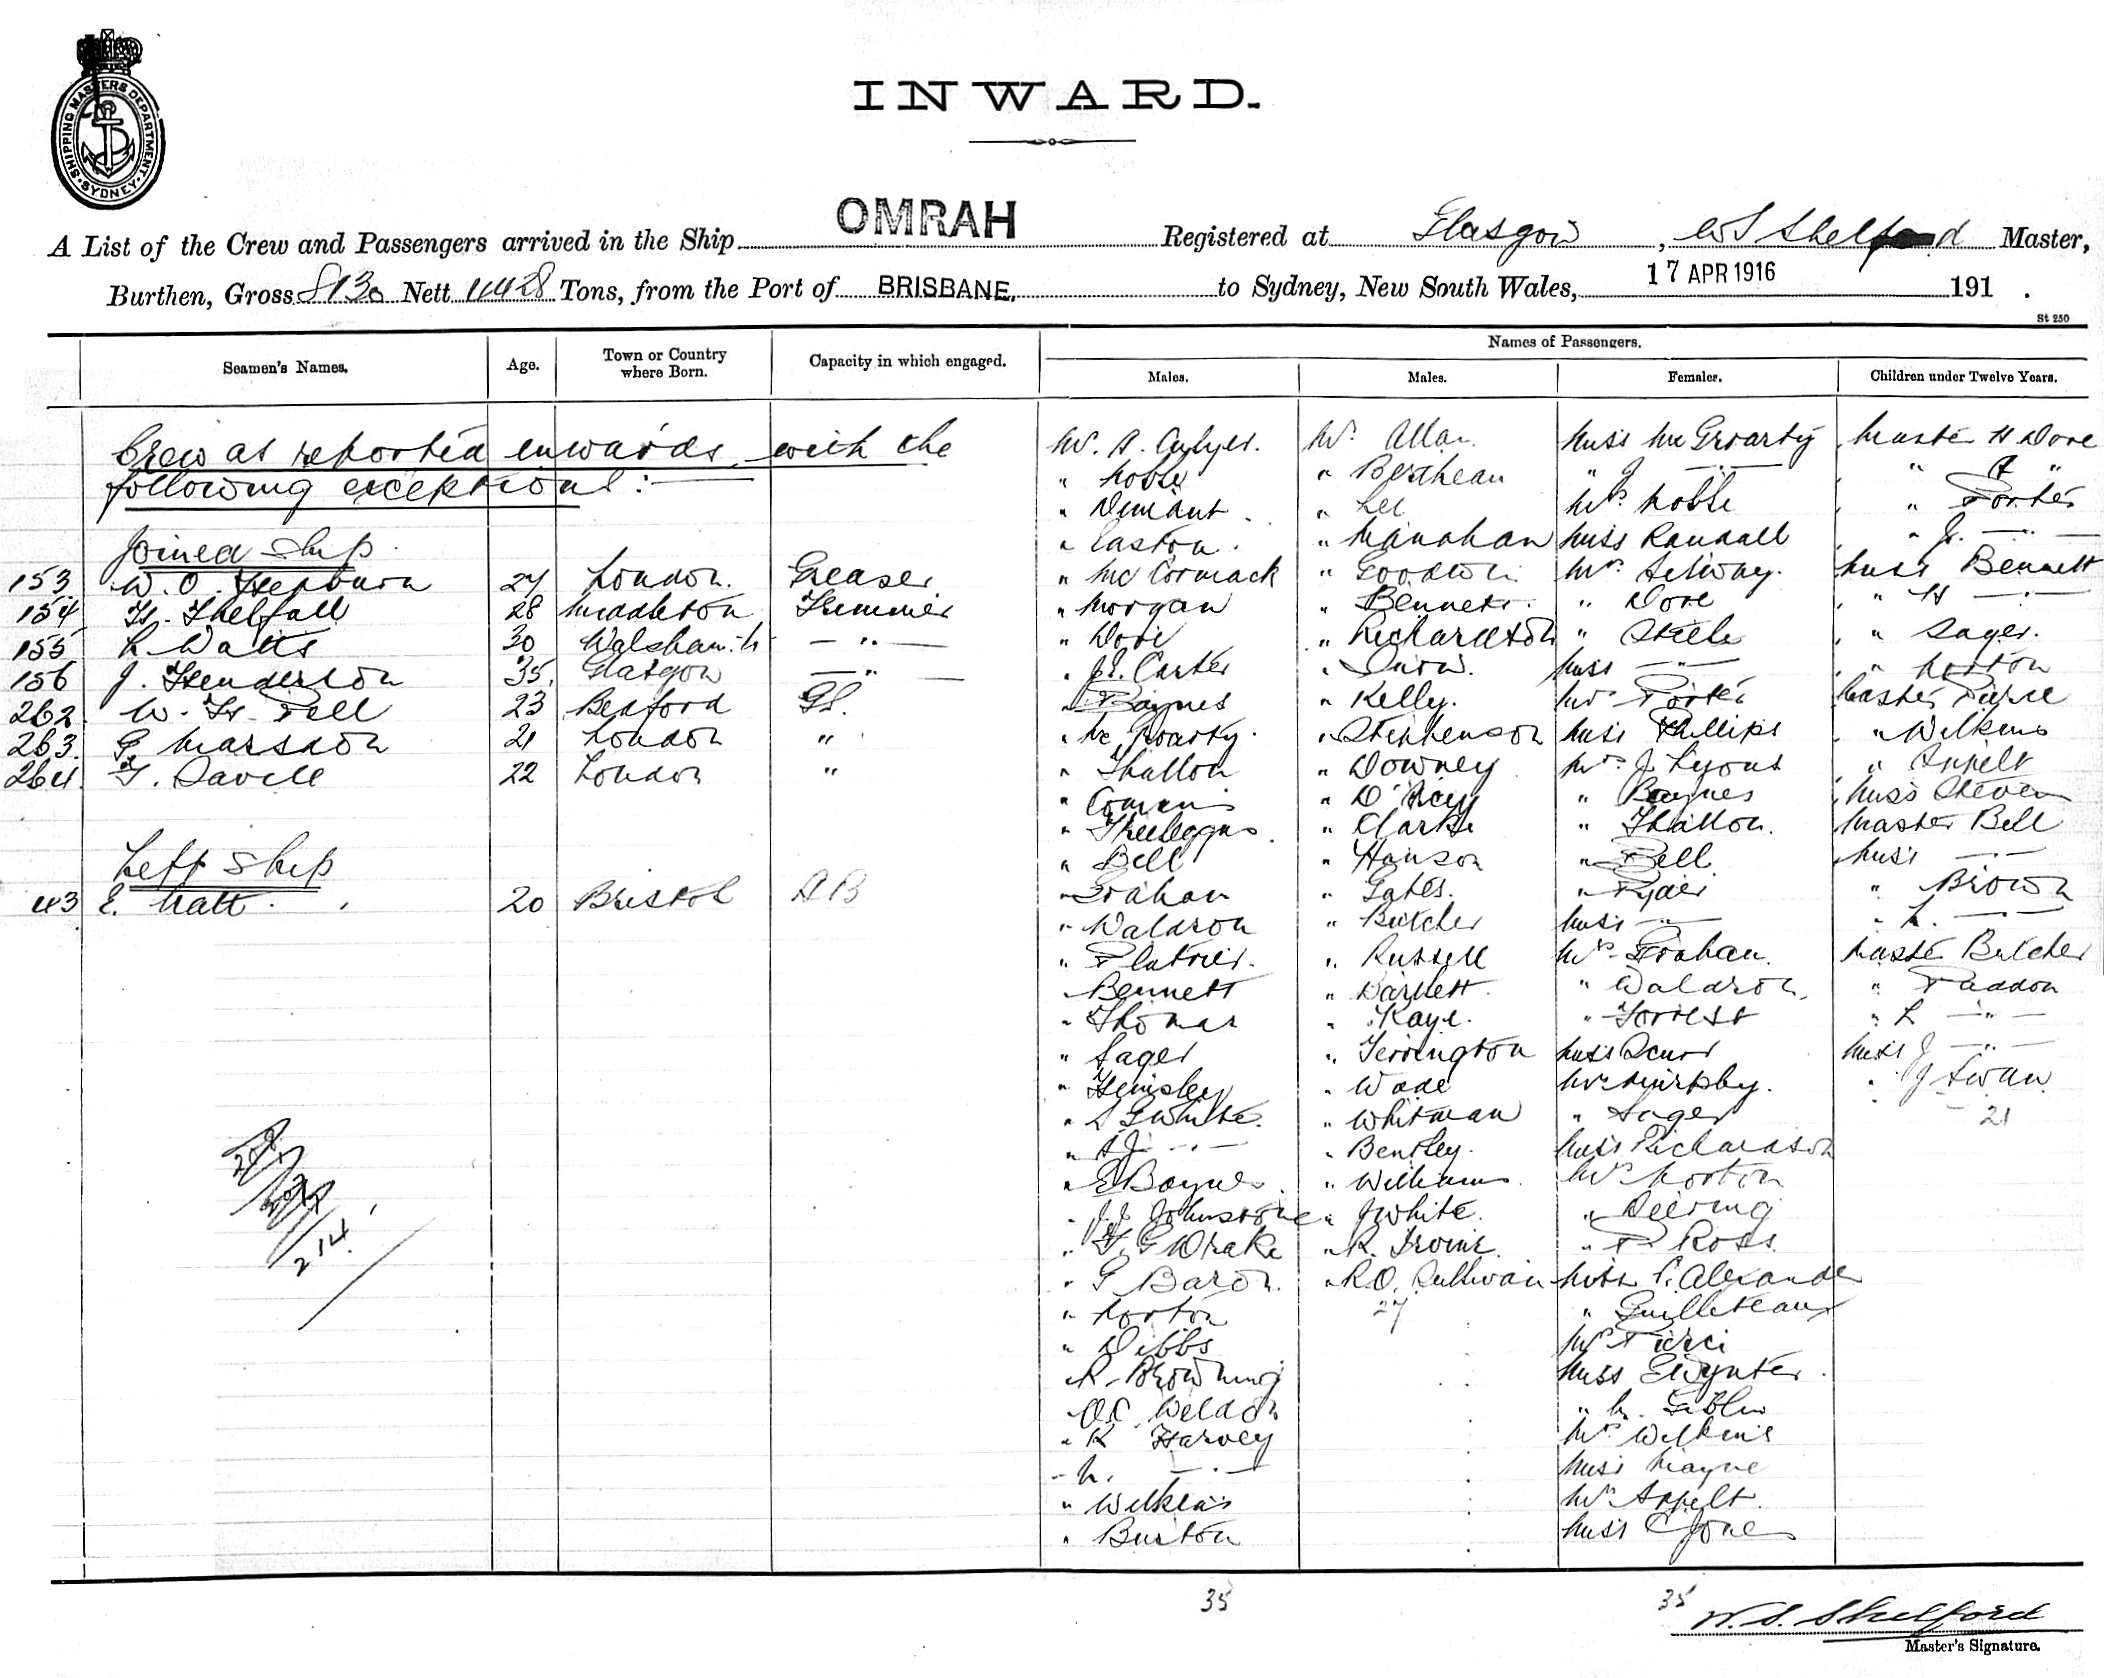 SHIPPING MASTERS DEPARTMENT
SYDNEY
INWARD.
A List of the Crew and Passengers arrived in the Ship OMRAH Registered at Glasgow, W S Shelford Master,
Burthen, Gross 8130 Nett Tons, from the Port of BRISBANE, to Sydney, New South Wales, 17 APR 1916 191 .
St 250
Seamen's Names. Age. Town or Country where Born. Capacity in which engaged. Names of Passengers.
Males. Males. Females. Children under Twelve Years.
Crew as reported inwards with the
following exceptions:—
Joined Ship
153 W. O. Hepburn 27 London. Greaser
154 H. Thelfall 28 Middleton Trimmer
155 R Watts 30 — " —
156 J. Henderson 35. Glasgow — " —
262 W. H. Pell 23 Bedford G.S.
263 G Marsdon 21 London "
264 F. Savell 22 London "
Left Ship
43 E. Natt 20 Bristol AB
214
Mr. A.
" Noble
" Easton.
" McCormack
" Morgan
" Dove
" Carter
" Baynes
" Mc Groarty.
" Thallon
" Bell
" Graham
" Waldron
" Bennett
" Thomas
" Sager
" Hemsley
" S G White.
" A J — " —
" E Baynes.
" J J Johnstone
" F. G Drake
" G Baron.
" Norton
" Dibbs
" R. Browning
" O.C. Weldon
" R Harvey
" N. — " —
" Wilkins
" Burton
35
Mr. Allan.
" Berthean
" Lee
" Manahan
" Goodwin
" Bennett.
" Richardson
" Snow.
" Kelly.
" Stephenson
" Downey
" Clarke
" Hanson
" Gates.
" Butcher
" Russell
" Bartlett.
" Kaye.
" Terrington
" Wade
" Whitman
" Bentley.
" Williams.
" J White.
" R. Irvine.
" R O. Sullivan
27
Miss McGroarty
" J — " —
Mrs Noble
Miss Randall
Mrs Selway.
" Dove
" Steele
Miss — " —
Mrs Porter
Miss Phillips
Mrs J. Lyons
" Baynes
" Thallon.
" Bell.
" Ryder
Miss — " —
Mrs Graham.
" Waldron.
" Forrest
Miss
Mrs Murphy.
" Sager
Miss Richardson
Mrs Norton
" Deering
" P Ross
Miss P. Alexander
" Guilleteaux
Mrs Pierce
Miss E Wynter.
" N. Giblin
Mrs Wilkins
Miss Mayne
Mrs Appelt.
Miss C Jones
35
Master H Dove
" A "
" Porter
" J. — " —
Miss Bennett
" H — " —
" Sager.
" Norton
Master Pierce
" Wilkins
" Appelt
Miss Steven
Master Bell
Miss — " —
" Brown
" L. — " —
Master Butcher
" Paddon
" L — " —
Miss J — " —
" J Swan
21
W. S. Shelford
Master's Signature.